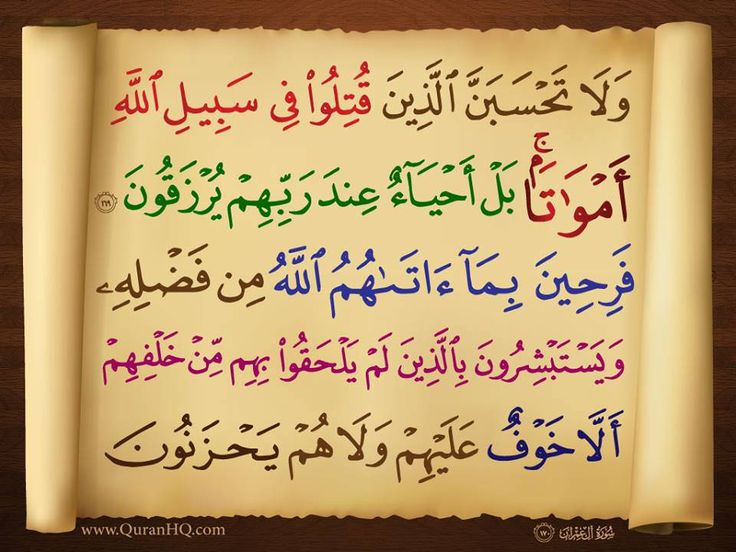 وَلَا تَحْسَبَنَّ ٱلَّذِينَ قُتِلُوا۟ فِى سَبِيلِ ٱللَّهِ
أَمْوَٰتًۢا ۚ بَلْ أَحْيَآءٌ عِندَ رَبِّهِمْ يُرْزَقُونَ ١٦٩
فَرِحِينَ بِمَآ ءَاتَىٰهُمُ ٱللَّهُ مِن فَضْلِهِۦ
وَيَسْتَبْشِرُونَ بِٱلَّذِينَ لَمْ يَلْحَقُوا۟ بِهِم مِّنْ خَلْفِهِمْ
أَلَّا خَوْفٌ عَلَيْهِمْ وَلَا هُمْ يَحْزَنُونَ
سُورَةُ آلِ عِمْرَان ١٧٠
www.QuranHQ.com